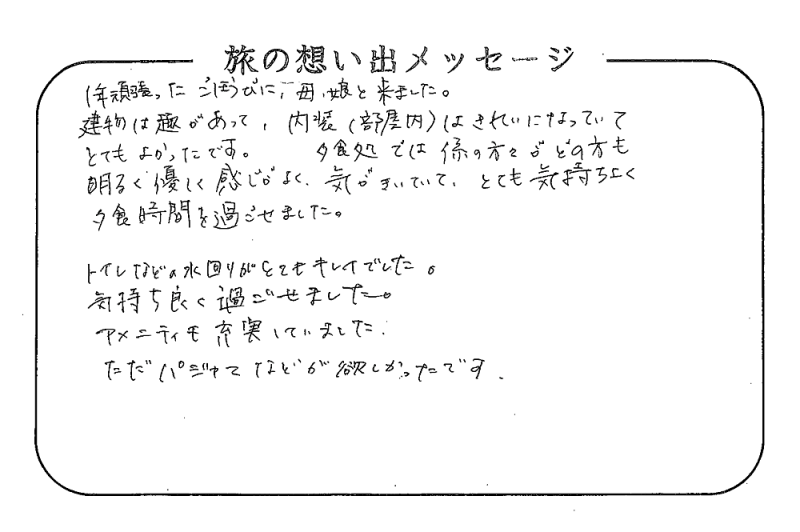 旅の想い出メッセージ
1年頑張ったごほうびに、母、娘と来ました。
建物は趣があって、内装(部屋内)はきれいになっていて
とてもよかったです。 夕食処では係の方々がどの方も
明るく優しく感じがよく、気がきいていて、とても気持ちよく
夕食時間を過ごせました。
トイレなどの水回りがとてもキレイでした。
気持ち良く過ごせました。
アメニティも充実していました.
ただパジャマなどが欲しかったです.